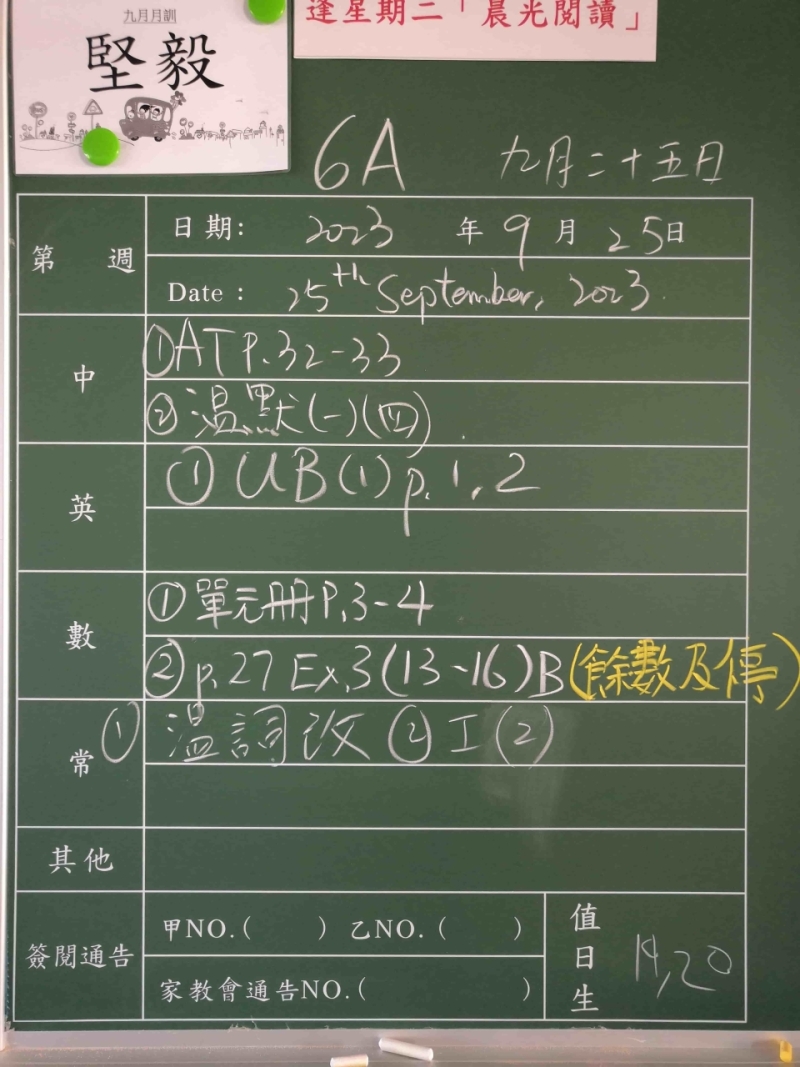 九月月訓
堅毅
逢星期二「晨光閱讀」
6A 九月二十五日
第 週
日期: 2023 年 9 月 25日
Date : 25th September, 2023.
中
①AT P.32-33
②溫默(一)(四)
英
① UB(1) p.1,2
數
①單元冊P.3-4
②p.27 Ex.3(13-16)B(餘數及停)
常
①溫詞改 ②工(2)
其他
簽閱通告
甲NO.( ) 乙NO.( )
家教會通告NO.( )
值日生
19,20